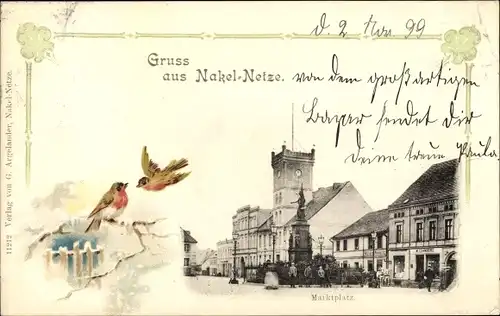 d. 2 Nov. 99
Gruss
aus Nakel-Netze.
von dem großartigen
Bazar sendet Dir
Deine treue Paula.
Marktplatz.
11212 Verlag von G. Argelander, Nakel-Netze.